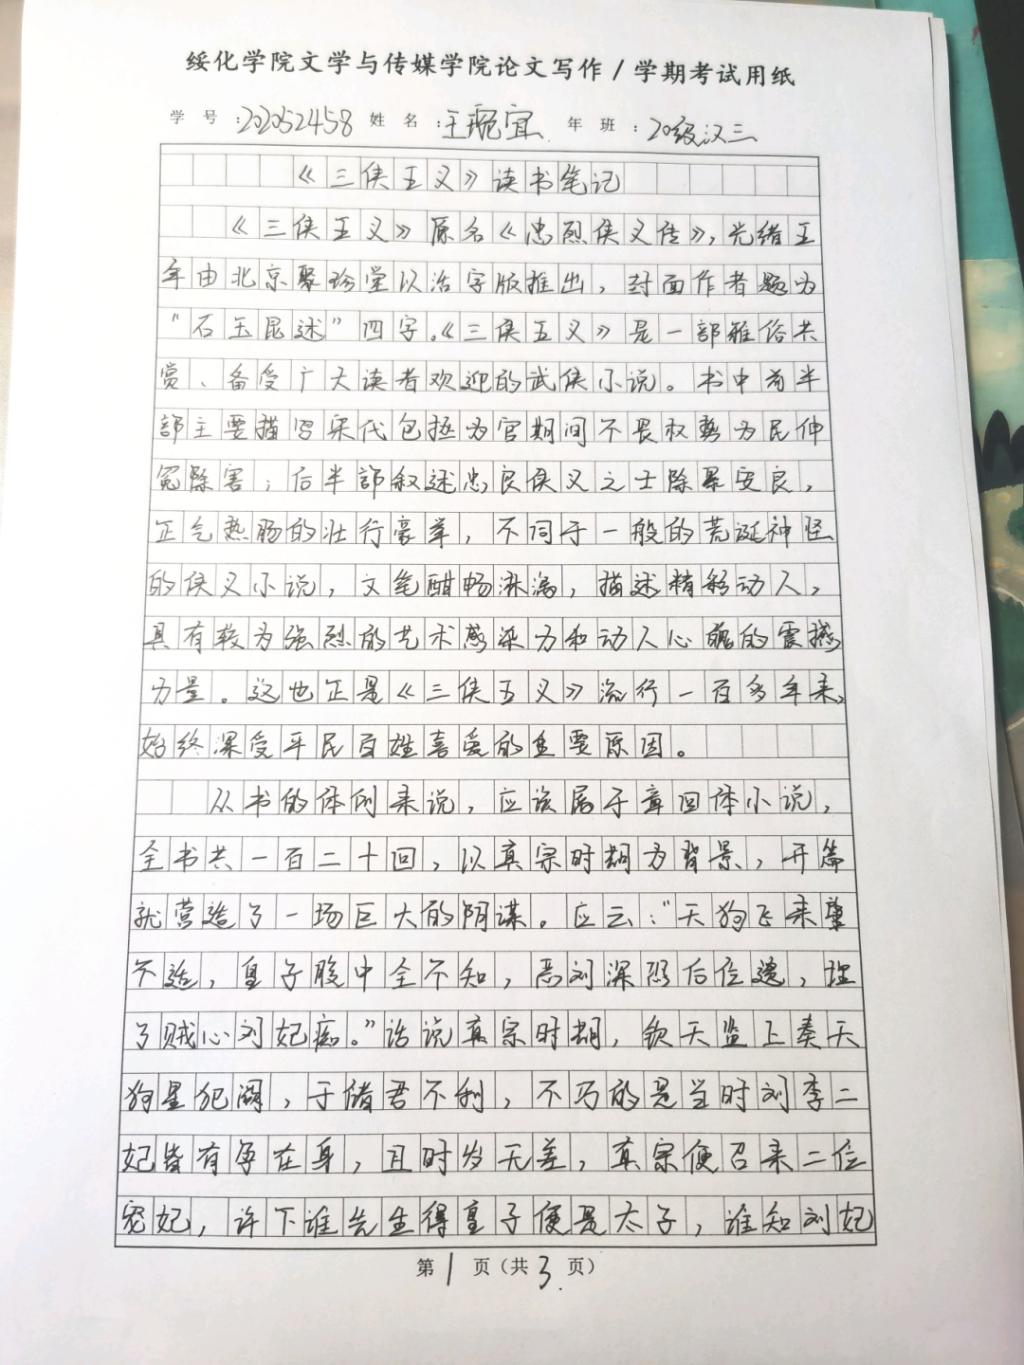 绥化学院文学与传媒学院论文写作/学期考试用纸
学 号：202052458 姓 名：王琬宜 年 班：20级汉三
《三侠五义》读书笔记
《三侠五义》原名《忠烈侠义传》，光绪五
年由北京聚珍堂以活字版推出，封面作者题为
“石玉昆述”四字。《三侠五义》是一部雅俗共
赏、备受广大读者欢迎的武侠小说。书中前半
部主要描写宋代包拯为官期间不畏权势为民伸
冤除害；后半部叙述忠良侠义之士除暴安良，
正气热肠的壮行豪举，不同于一般的荒诞神怪
的侠义小说，文笔酣畅淋漓，描述精彩动人，
具有较为强烈的艺术感染力和动人心魄的震撼
力量。这也正是《三侠五义》流行一百多年来，
始终深受平民百姓喜爱的重要原因。
从书的体例来说，应该属于章回体小说，
全书共一百二十回，以真宗时期为背景，开篇
就营造了一场巨大的阴谋。应云：“天狗飞来孽
不造，皇子腹中全不知，恶刘深恐后位遗，埋
了贼心刘妃痴。”话说真宗时期，钦天监上奏天
狗星犯阙，于储君不利，不巧的是当时刘李二
妃皆有孕在身，且时岁无差，真宗便召来二位
宠妃，许下谁先生得皇子便是太子，谁知刘妃
第1页（共3页）